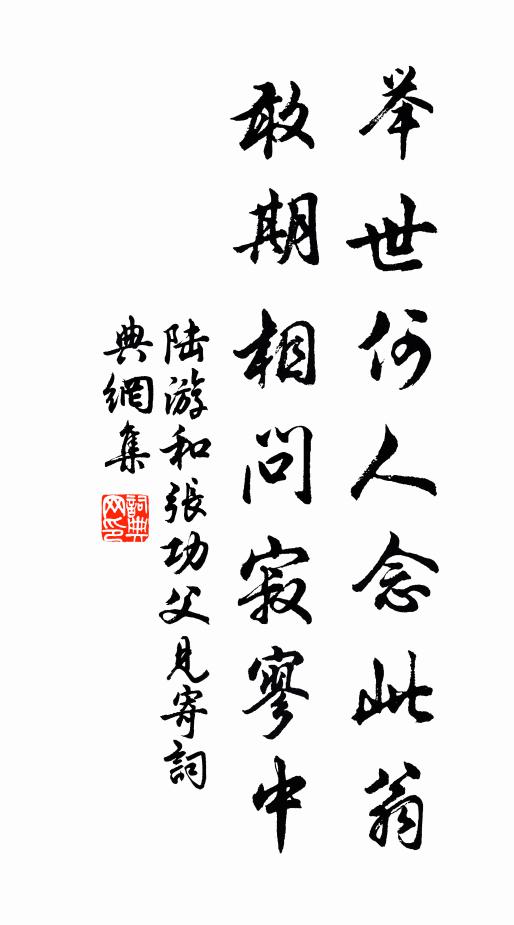 举世何人念此翁
敢期相问寂寥中
陆游和張功父見寄詞
典網集
詞典网印